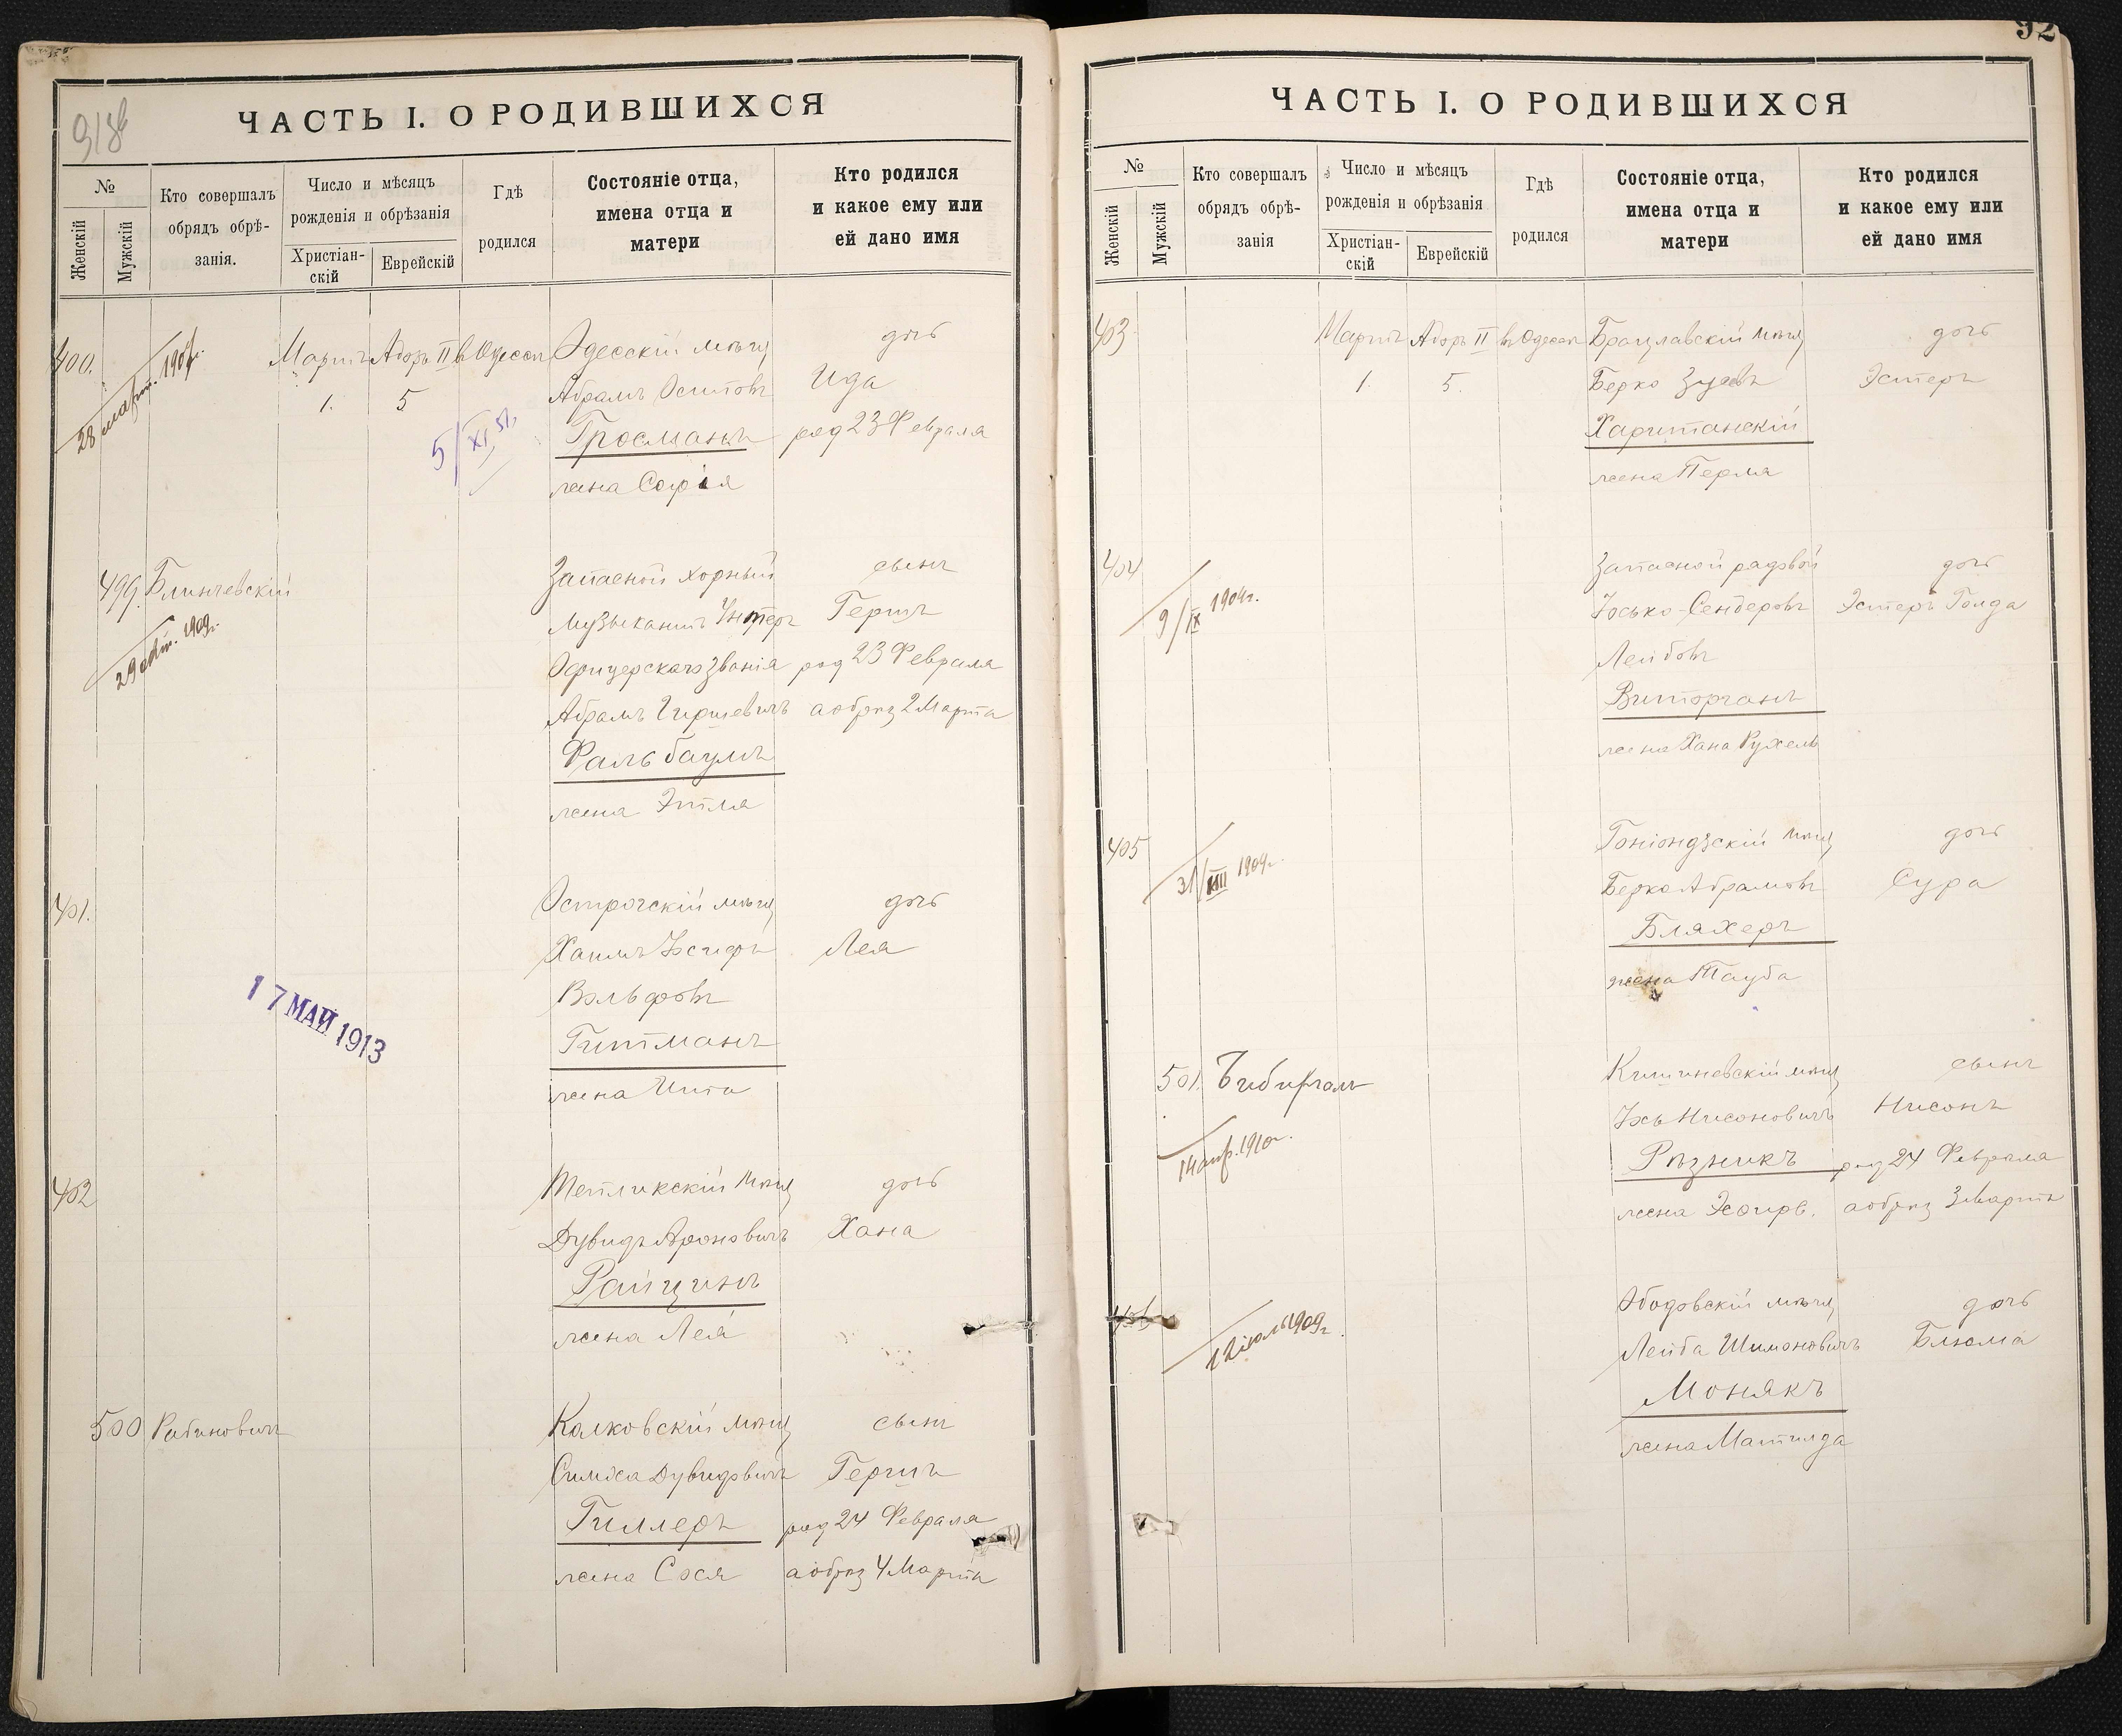 918б
ЧАСТЬ I. О РОДИВШИХСЯ
№
Женскій
Мужскій
Кто совершалъ
обрядъ обрѣ-
занія.
Число и мѣсяцъ
рожденія и обрѣзанія
Христіан-
скій
Еврейскій
Гдѣ
родился
Состояніе отца,
имена отца и
матери
Кто родился
и какое ему или
ей дано имя
400. Мартъ Адоръ II в Одессѣ Одесскій мѣщ дочь
28 март. 1909г.
1. 5 Абрамъ Осиповъ Ида
Гросманъ род 23 Февраля
5/XI, 51,
жена Софія
499. Блинчевскій Запасной хорный сынъ
29 авг. 1909г.
музыкантъ Унтеръ Гершъ
Офицерскаго званія род 23 Февраля
Абрамъ Гиршевичъ а обрѣз 2 Марта
Фальбаумъ
жена Этля
401. Острогскій мѣщ дочь
Хаимъ Іосифъ Лея
Вольфовъ
Гитманъ
жена Ита
17 МАЙ 1913
402 Тепликскій мѣщ дочь
Дувидъ Ароновичъ Хана
Райцинъ
жена Лея
500 Рабиновичъ Калковскій мѣщ сынъ
Симха Дувидовичъ Гершъ
Гиллеръ род 24 Февраля
жена Сося а обрѣз 4 Марта
92
ЧАСТЬ I. О РОДИВШИХСЯ
№
Женскій
Мужскій
Кто совершалъ
обрядъ обрѣ-
занія
Число и мѣсяцъ
рожденія и обрѣзанія
Христіан-
скій
Еврейскій
Гдѣ
родился
Состояніе отца,
имена отца и
матери
Кто родился
и какое ему или
ей дано имя
403. Мартъ Адоръ II в Одессѣ Брацлавскій мѣщ дочь
1. 5. Берко Зусевъ Эстеръ
Хаританскій
жена Перля
404 Запасной рядовой дочь
9/IX 1909г.
Іосько-Сендеровъ Эстеръ Голда
Лейбовъ
Виторганъ
жена Хана Рухель
405 Гоніондзскій мѣщ дочь
31/VIII 1909г.
Берко Абрамовъ Сура
Бляхеръ
жена Тауба
501. Кишиневскій мѣщ сынъ
14 апр. 1910г.
Іось Нисоновичъ Нисонъ
Рѣзникъ род 24 Февраля
жена Эсфирь. а обрѣз 3 Марта
406 Ободовскій мѣщ дочь
12 іюль 1909г.
Лейба Шимоновичъ Блюма
Монякъ
жена Матильда